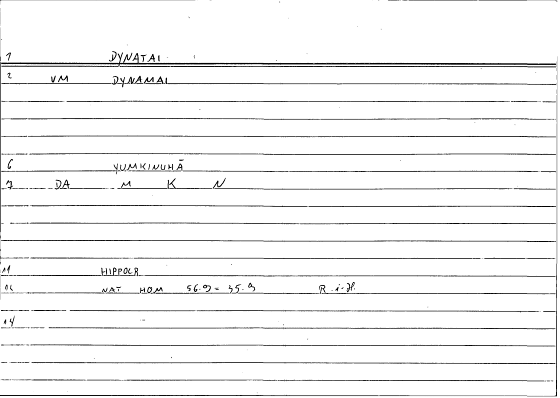 1 DYNATAI
2 VM DYNAMAI
6 YUMKINUHĀ
7 DA M K N
11 HIPPOCR
NAT HOM 56.9 = 55.9 R.i.H.
14